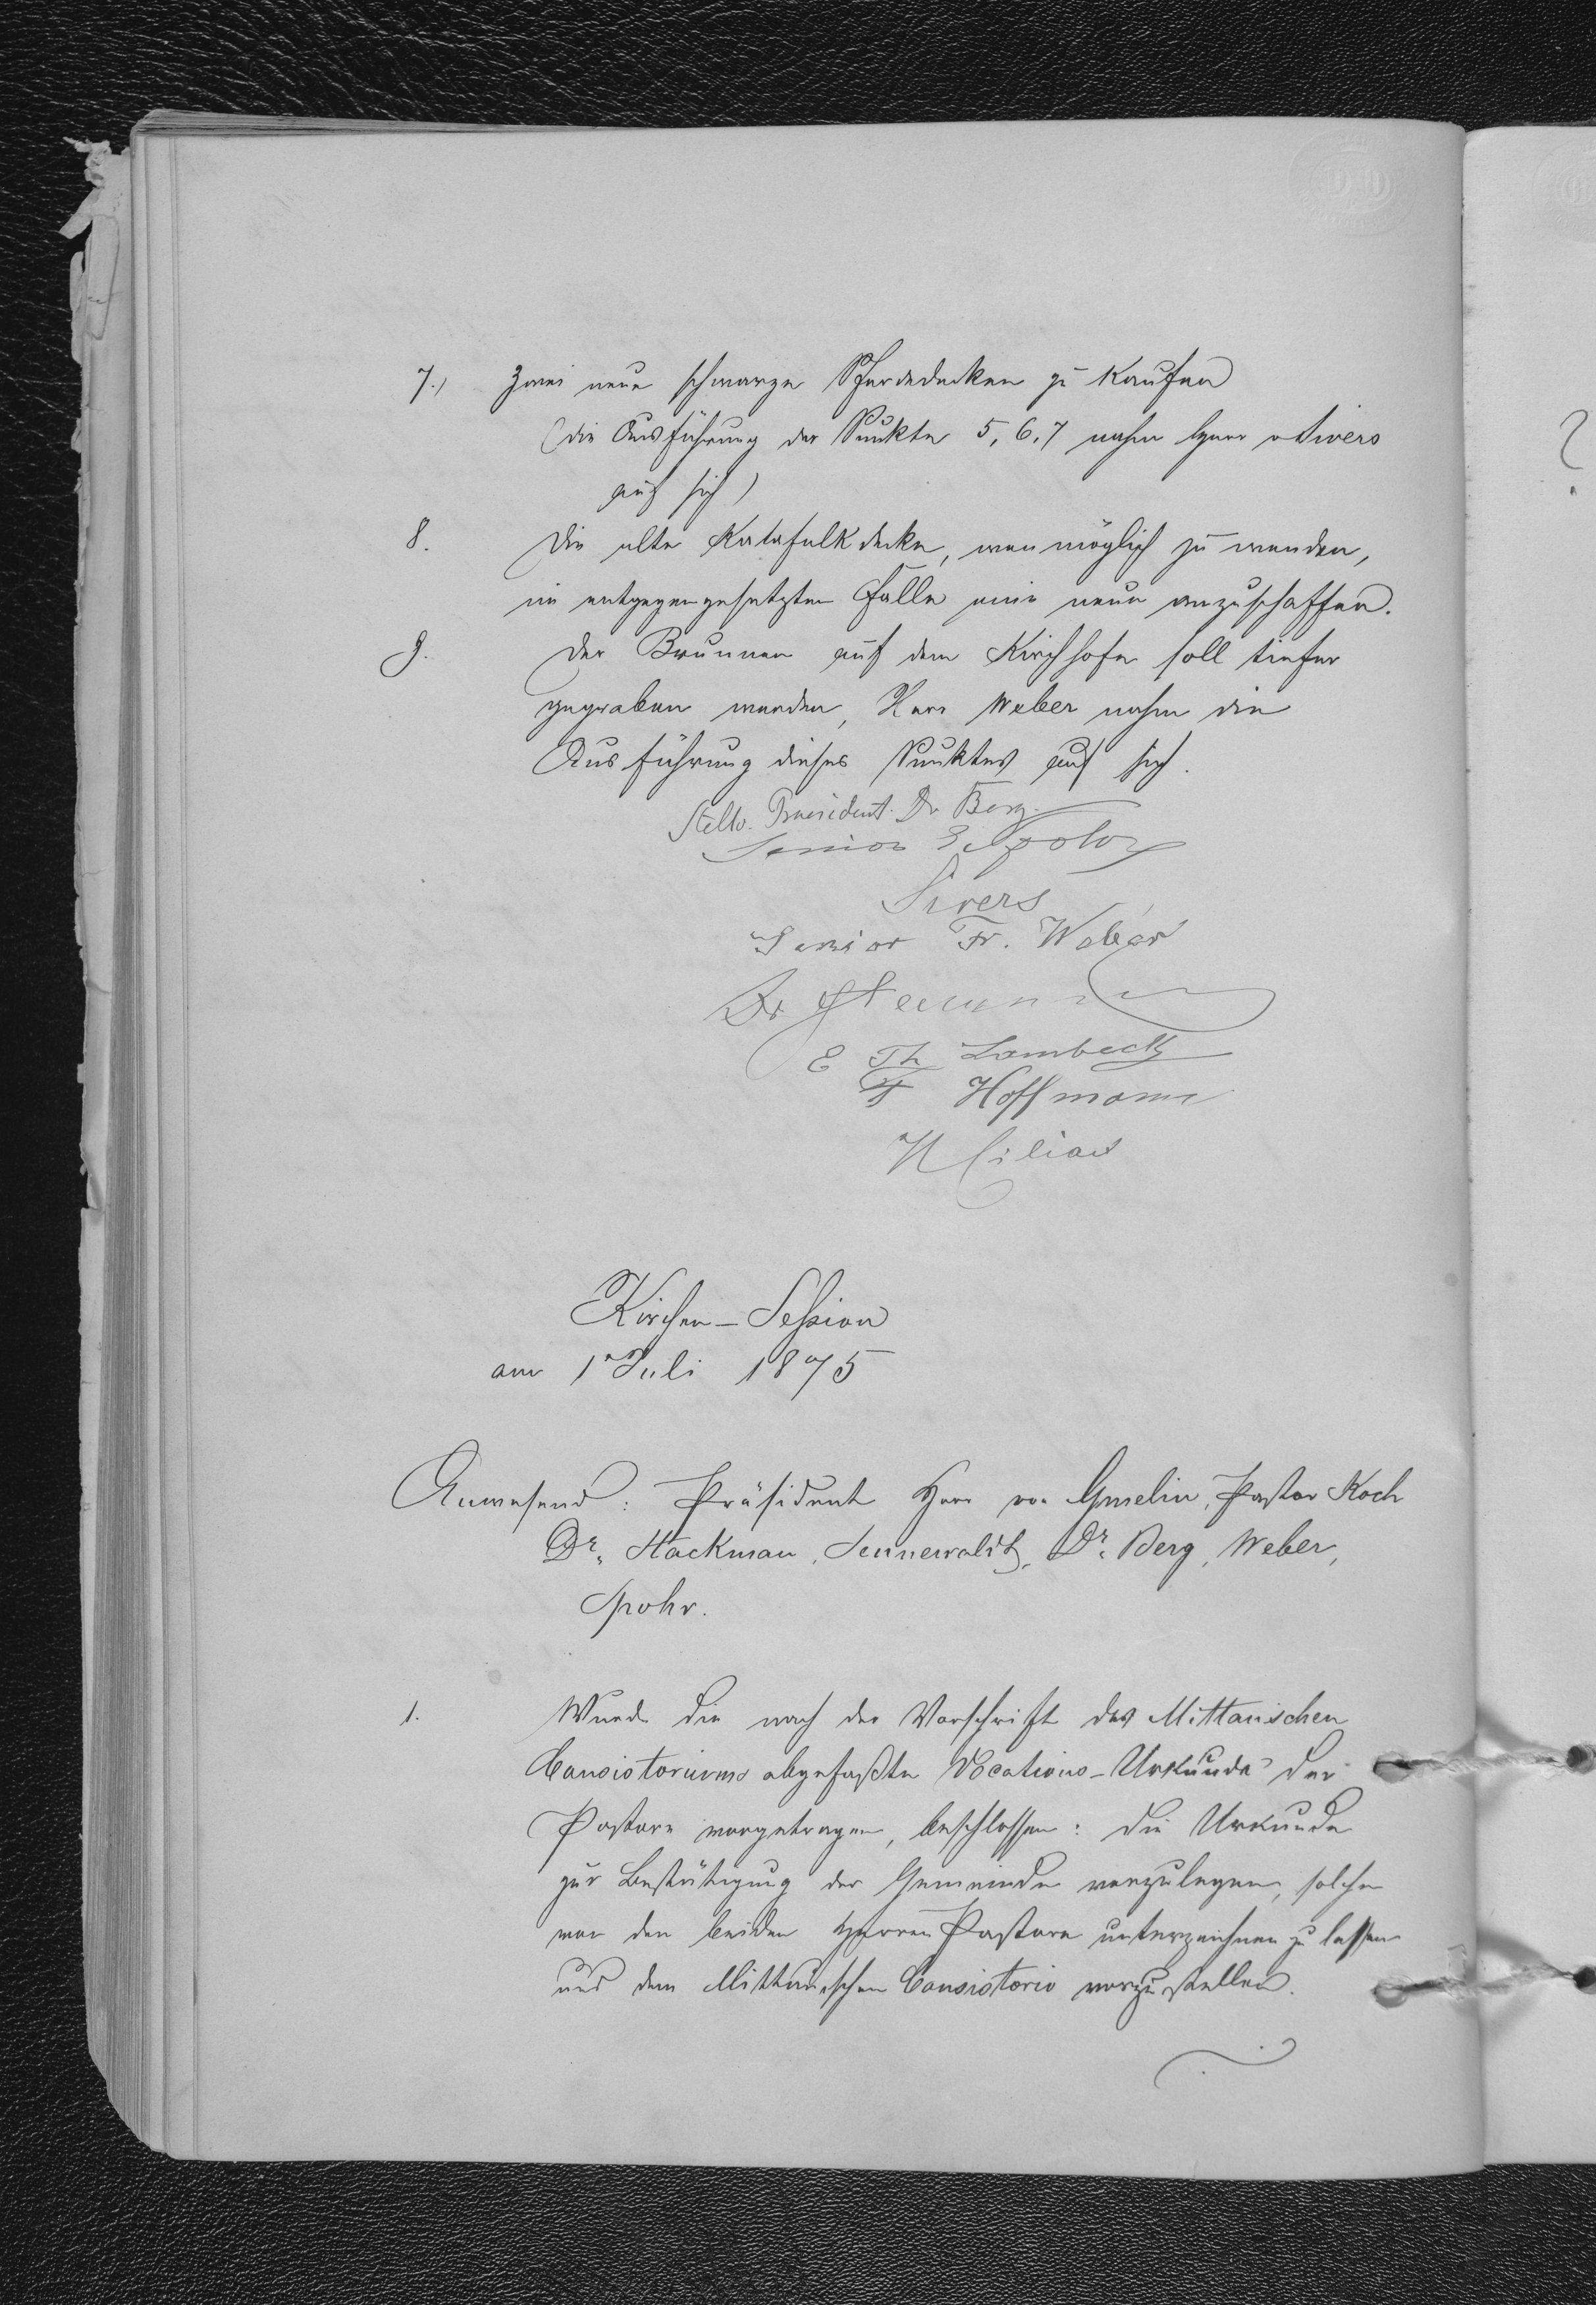 7.) Zwei neue schwarze Pferdedecken zu kaufen
(die Ausführung der Punkte 5, 6, 7 nahm Herr v Sivers
auf sich)
8. Die alte Katafalkdecke, wenn möglich zu wenden,
im entgegengesetzten Falle eine neue anzuschaffen.
9. Der Brunnen auf dem Kirchhofe soll tiefer
gegraben werden, Herr Weber nahm die
Ausführung dieses Punktes auf sich.
Stellv. Praesident. Dr Berg.
Senior
Sivers
Senior Fr. Weber
Dr
E Th Lambeck
F Hoffmann
Kirchen-Session
am 1 Juli 1875
Anwesend: Präsident Herr von Gmelin, Pastor Koch
Dr. Hackman, Sennewaldt, Dr. Berg, Weber,
Spohr.
1. Wurde die nach der Vorschrift des Mittauischen
Consistoriums abgefaßte Vocations-Urkunde der
Pastore vorgetragen, beschlossen: die Urkunde
zur Bestätigung der Gemeinde vorzulegen, solche
von den beiden Herren Pastore unterzeichnen zu lassen
und dem Mittauischen Consistorio vorzustellen.